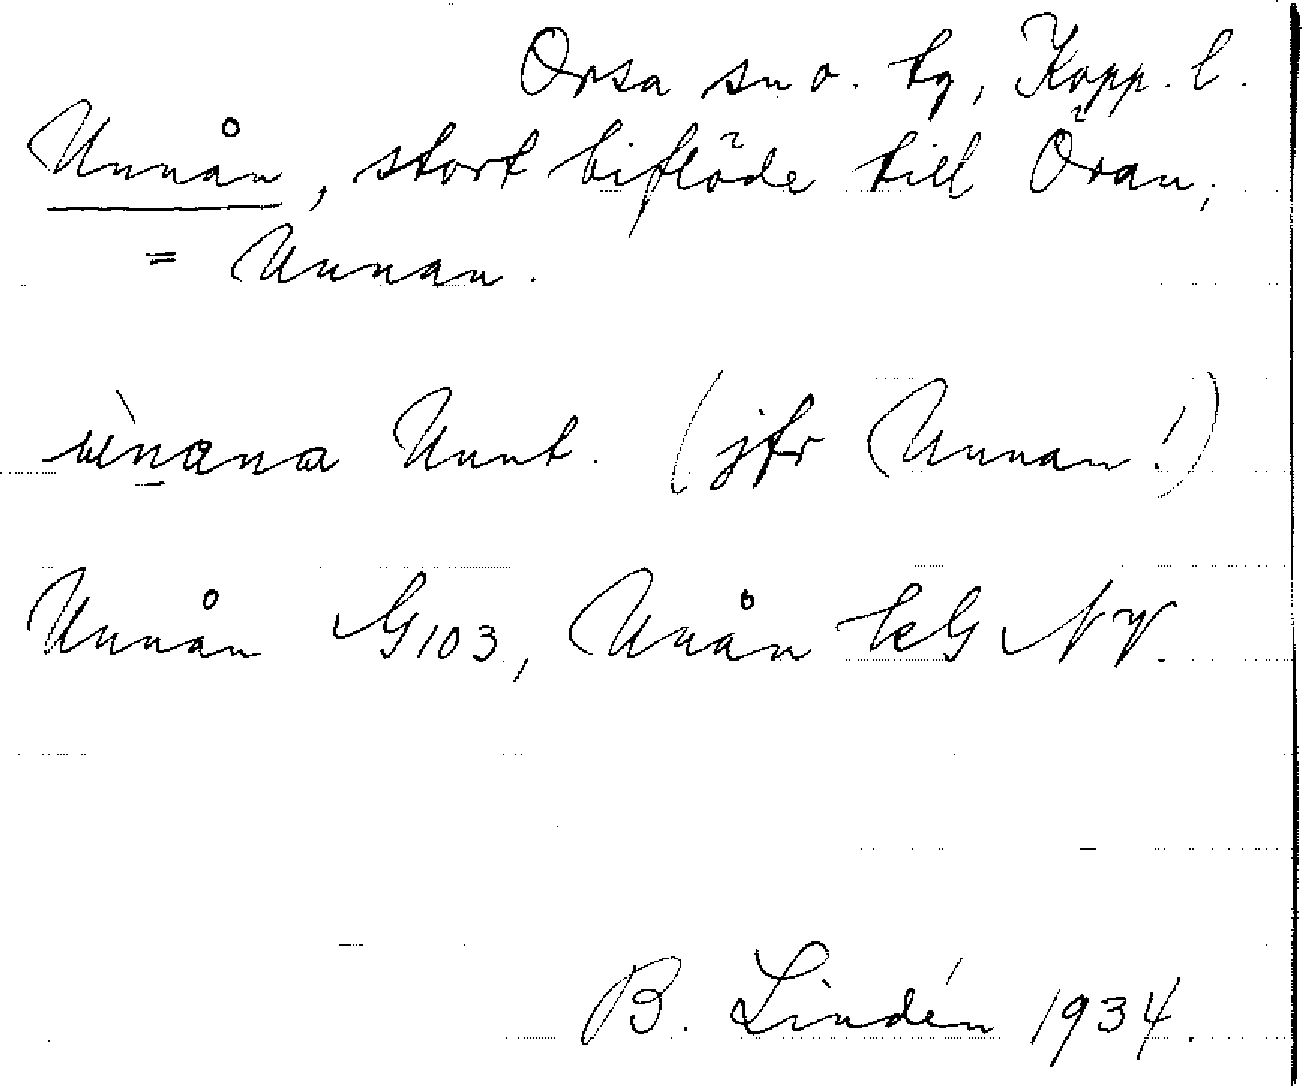 Orsa sn o. tg, Kopp. l.
Unnån, stort biflöde till Öran;
= Unnan.
Unnt. (jfr Unnan!)
Unnån G103, Unån kG NV.
B. Lindén 1934.